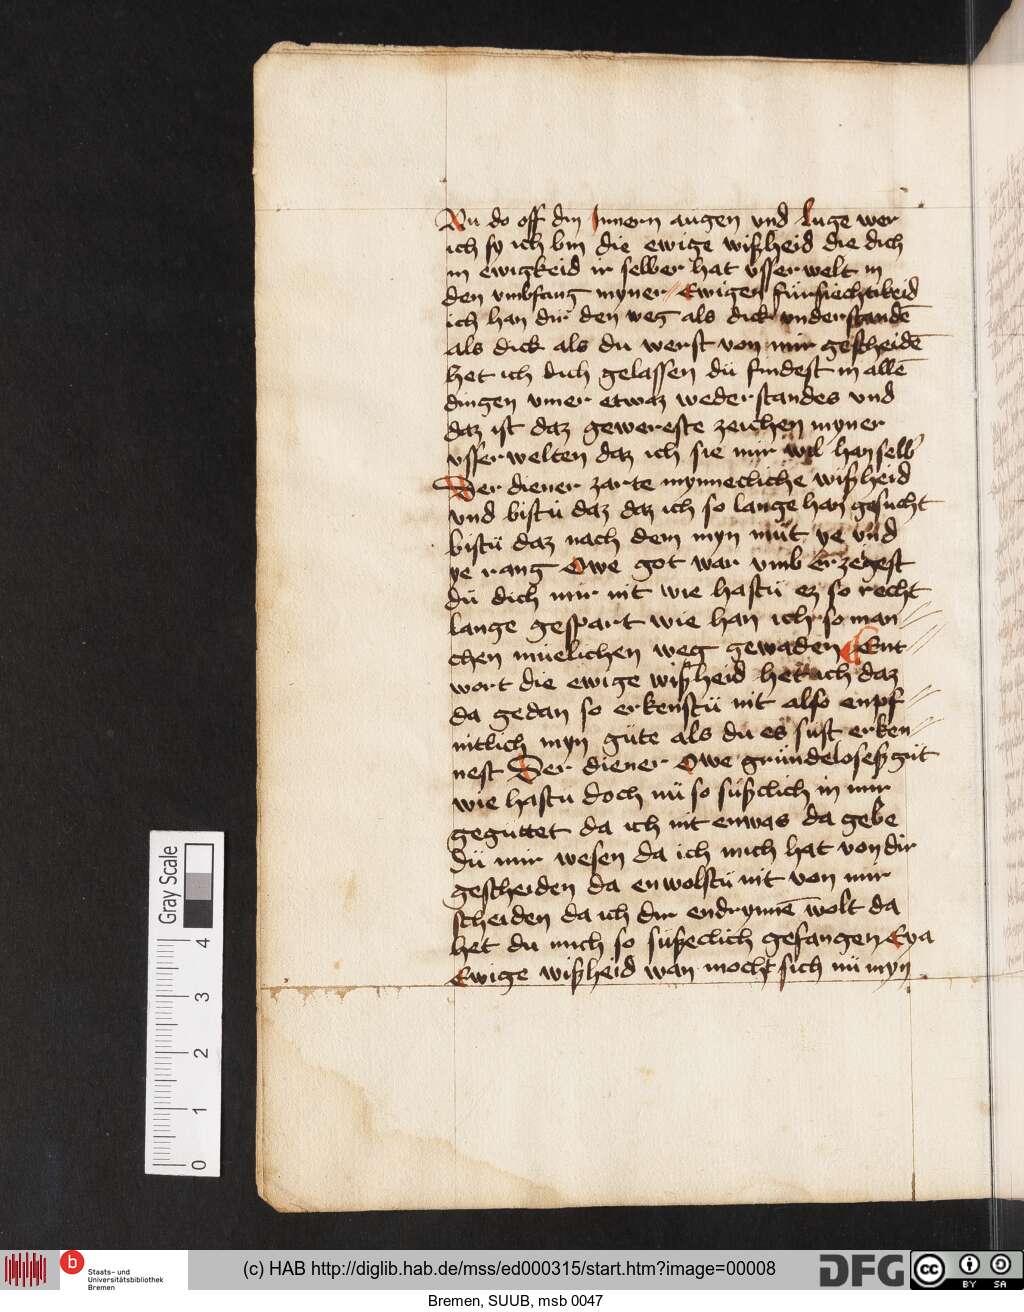 Nu do off din Innern augen vnd luge wer
ich sy ich bin die ewige wißheid die dich
in ewigkeid ir selber hat vsserwelt in
den vmbfang myner Ewigen fürsiechtikeid
ich han dir den weg als dick vnderstandē
als dick als du werst von mir gescheidē
het ich dich gelassen dü findest in allē
dingen vmer etwaz wederstandes vnd
daz ist daz gewereste zeichen myner
vsserwelten daz ich sie mir wil han selb
Der diener zarte mynnecliche wißheid
vnd bistu daz daz ich so lange han gesucht
bistü daz nach dem myn müt ye vnd
ye rang Owe got war vmb Erzegest
dü dich mir nit wie hastü ez so recht
lange gespart wie han ich so man
chen müelichen weg gewaden Ent
wort die ewige wißheid het ich daz
da gedan so erkenstü nit also enpf
nitlich myn güte als du es sust erken
nest Der diener Owe gründeloseß güt
wie hastu doch nü so süßclich in mir
gegüttet da ich nit enwas da gebe
dü mir wesen da ich mich hat von dir
gescheiden da enwolstü nit von mir
scheiden da ich dir endrynnē wolt da
het du mich so süßeclich gefangen Eya
Ewige wißheid wan mocht sich nü myn
Gray Scale
4
3
2
1
0
b
Staats- und
Universitätsbibliothek
Bremen
(c) HAB http://diglib.hab.de/mss/ed000315/start.htm?image=00008
DFG
cc
BY SA
Bremen, SUUB, msb 0047